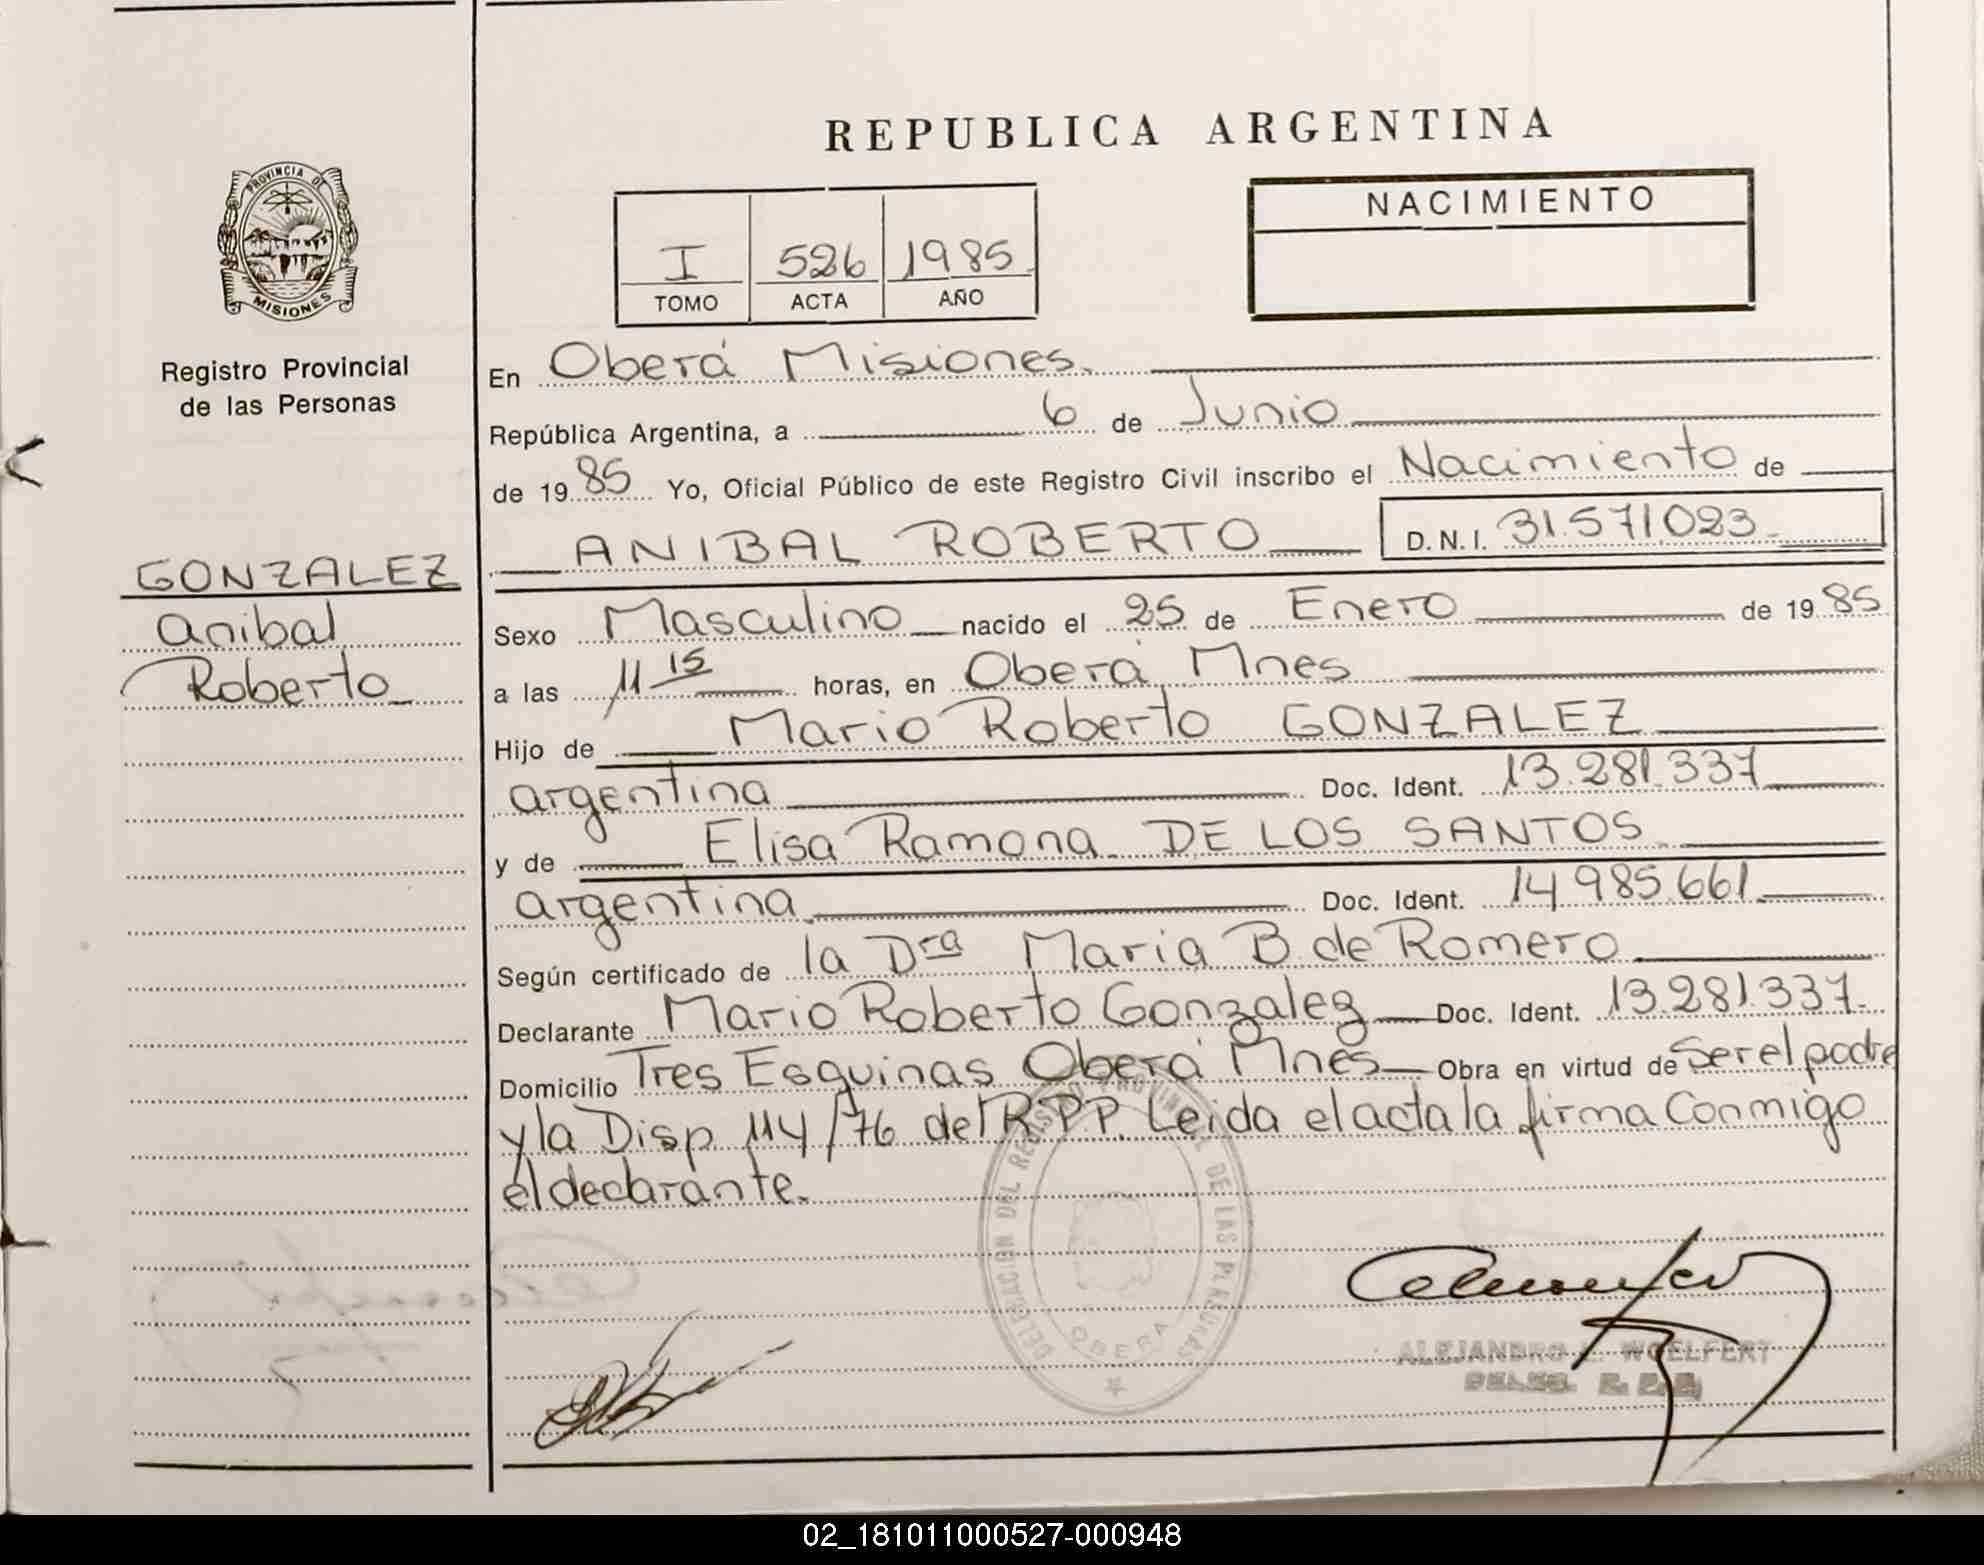 REPUBLICA ARGENTINA
PROVINCIA DE
MISIONES
Registro Provincial
de las Personas
I 526 1985
TOMO ACTA AÑO
NACIMIENTO
En Oberá Misiones.
República Argentina, a 6 de Junio
de 1985 Yo, Oficial Público de este Registro Civil inscribo el Nacimiento de
ANIBAL ROBERTO D.N.I. 31.571.023
GONZALEZ
Anibal
Roberto
Sexo Masculino nacido el 25 de Enero de 1985
a las 11 15 horas, en Oberá Mnes
Hijo de Mario Roberto GONZALEZ
argentina Doc. Ident. 13.281.337
y de Elisa Ramona DE LOS SANTOS
argentina Doc. Ident. 14.985.661
Según certificado de la Dra Maria B. de Romero
Declarante Mario Roberto Gonzalez Doc. Ident. 13.281.337.
Domicilio Tres Esquinas Oberá Mnes Obra en virtud de ser el padre
y la Disp. 114/76 del R.P.P. Leida el acta la firma conmigo
el declarante.
DELEGACION DEL REGISTRO PROVINCIAL DE LAS PERSONAS
OBERA
ALEJANDRO L. WOELFERT
02_181011000527-000948